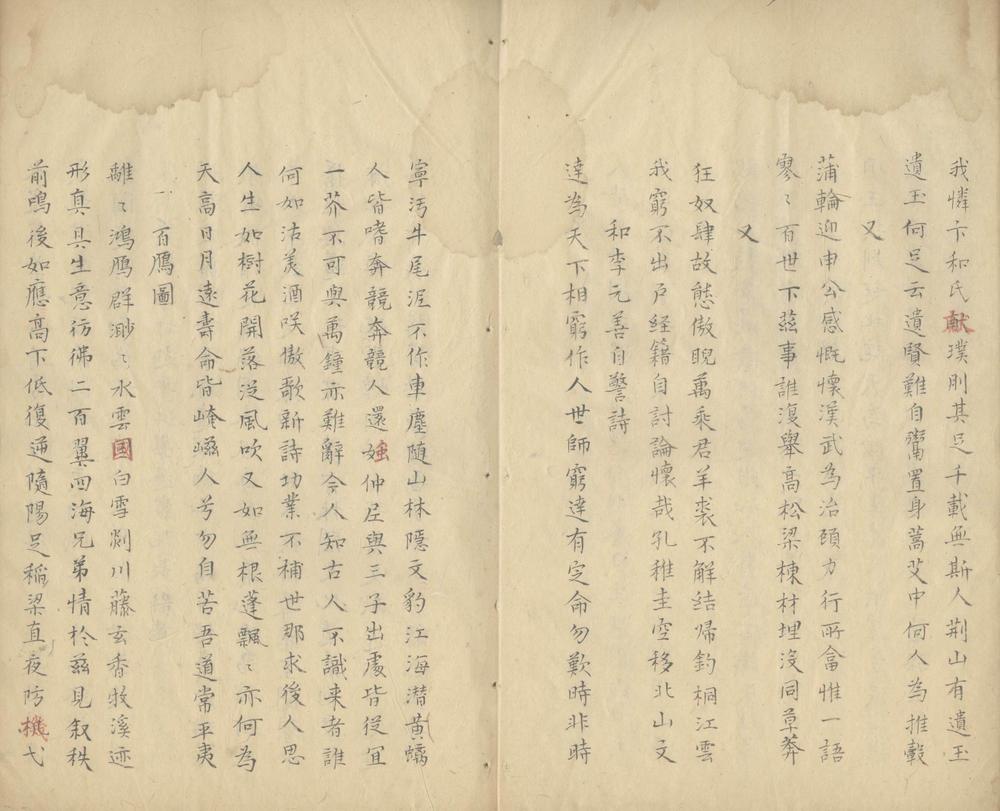 我憐卞和氏献璞刖其足千載無斯人荆山有遺玉
遺玉何足云遺賢難自鬻置身蒿艾中何人為推轂
又
蒲輪迎申公感慨懷漢武為治頋力行所畣惟一語
寥〻百世下茲事誰復舉高松梁棟材埋沒同草莽
又
狂奴肆故態傲睨萬乘君羊裘不解結帰釣桐江雲
我窮不出戶経籍自討論懷哉孔稚圭空移北山文
和李元善自警詩
達為天下相窮作人世師窮達有定命勿歎時非時
寧汚牛尾泥不作車塵随山林隱文豹江海潜黃螭
人皆嗜奔競奔競人還媸仲尼與三子出處皆從宜
一芥不可與萬鐘亦難辭今人知古人不識来者誰
何如沽美酒咲傲歌新詩功業不補世那求後人思
人生如樹花開落从風吹又如無根蓬飄〻亦何為
天高日月遠壽命皆崦嵫人兮勿自苦吾道常平夷
百鴈圖
離〻鴻鴈群渺〻水雲國白雪剡川藤玄香牧溪迹
形真具生意彷彿二百翼四海兄弟情於茲見叙秩
前鳴後如應高下低復逆隨陽足稲梁直夜防機弋